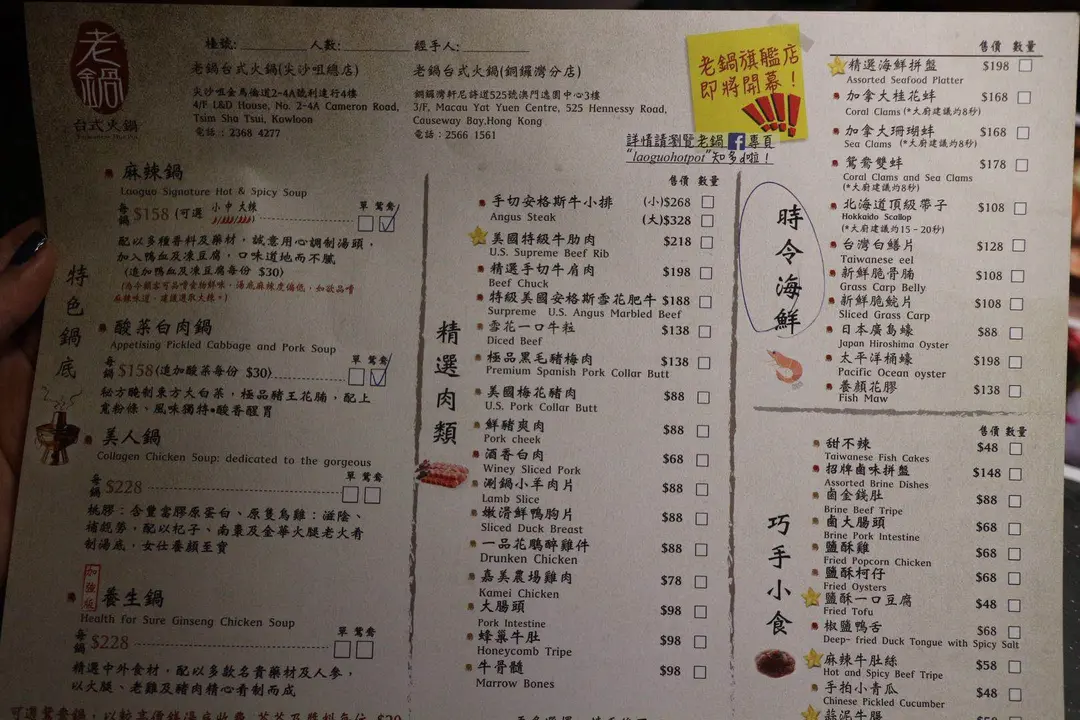 老鍋
台式火鍋
檯號:________ 人數:________ 經手人:________
老鍋台式火鍋(尖沙咀總店)
尖沙咀金馬倫道2-4A號利達行4樓
4/F L&D House, No. 2-4A Cameron Road,
Tsim Sha Tsui, Kowloon
電話:2368 4277
老鍋台式火鍋(銅鑼灣分店)
銅鑼灣軒尼詩道525號澳門逸園中心3樓
3/F, Macau Yat Yuen Centre, 525 Hennessy Road,
Causeway Bay,Hong Kong
電話:2566 1561
老鍋旗艦店
即將開幕!
!!!!
詳情請瀏覽老鍋 f 專頁
"laoguohotpot"知多d啦!
特色鍋底
麻辣鍋
Laoguo Signature Hot & Spicy Soup
每鍋 $158 (可選 小 中 大辣 單 鴛鴦
配以多種香料及藥材,誠意用心調制湯頭,
加入鴨血及凍豆腐,口味道地而不膩
(追加鴨血及凍豆腐每份 $30)
酸菜白肉鍋
Appetising Pickled Cabbage and Pork Soup
每鍋 $158(追加酸菜每份 $30) 單 鴛鴦
秘方醃制東方大白菜,極品豬王花腩,配上
寬粉條、風味獨特•酸香醒胃
美人鍋
Collagen Chicken Soup: dedicated to the gorgeous
每鍋 $228 單 鴛鴦
桃膠:含豐富膠原蛋白、原隻烏雞:滋陰、
補虧勞,配以杞子、南棗及金華火腿老火
制湯底,女仕養顏至寶
加強版
養生鍋
Health for Sure Ginseng Chicken Soup
每鍋 $228 單 鴛鴦
精選中外食材,配以多款名貴藥材及人參,
以大腿、老雞及豬肉精心制而成
精選肉類
售價 數量
手切安格斯牛小排 (小)$268
Angus Steak (大)$328
美國特級牛肋肉 $218
U.S. Supreme Beef Rib
精選手切牛肩肉 $198
Beef Chuck
特級美國安格斯雪花肥牛 $188
Surpreme U.S. Angus Marbled Beef
雪花一口牛粒 $138
Diced Beef
極品黑毛豬梅肉 $138
Premium Spanish Pork Collar Butt
美國梅花豬肉 $88
U.S. Pork Collar Butt
鮮豬爽肉 $88
Pork cheek
酒香白肉 $68
Winey Sliced Pork
涮鍋小羊肉片 $88
Lamb Slice
嫩滑鮮鴨胸片 $88
Sliced Duck Breast
一品花鵰醉雞件 $88
Drunken Chicken
嘉美農場雞肉 $78
Kamei Chicken
大腸頭 $98
Pork Intestine
蜂巢牛肚 $98
Honeycomb Tripe
牛骨髓 $98
Marrow Bones
時令海鮮
售價 數量
精選海鮮拼盤 $198
Assorted Seafood Platter
加拿大桂花蚌 $168
Coral Clams (*大廚建議約8秒)
加拿大珊瑚蚌 $168
Sea Clams (*大廚建議約8秒)
鴛鴦雙蚌 $178
Coral Clams and Sea Clams
(*大廚建議約8秒)
北海道頂級帶子 $108
Hokkaido Scallop
(*大廚建議約15-20秒)
台灣白鱔片 $128
Taiwanese eel
新鮮脆骨腩 $108
Grass Carp Belly
新鮮脆鯇片 $108
Sliced Grass Carp
日本廣島蠔 $88
Japan Hiroshima Oyster
太平洋桶蠔 $198
Pacific Ocean oyster
養顏花膠 $138
Fish Maw
巧手小食
售價 數量
甜不辣 $48
Taiwanese Fish Cakes
招牌鹵味拼盤 $148
Assorted Brine Dishes
鹵金錢肚 $88
Brine Beef Tripe
鹵大腸頭 $68
Brine Pork Intestine
鹽酥雞 $68
Fried Popcorn Chicken
鹽酥柯仔 $68
Fried Oysters
鹽酥一口豆腐 $48
Fried Tofu
椒鹽鴨舌 $68
Deep- fried Duck Tongue with Spicy Salt
麻辣牛肚絲 $58
Hot and Spicy Beef Tripe
手拍小青瓜 $48
Chinese Pickled Cucumber